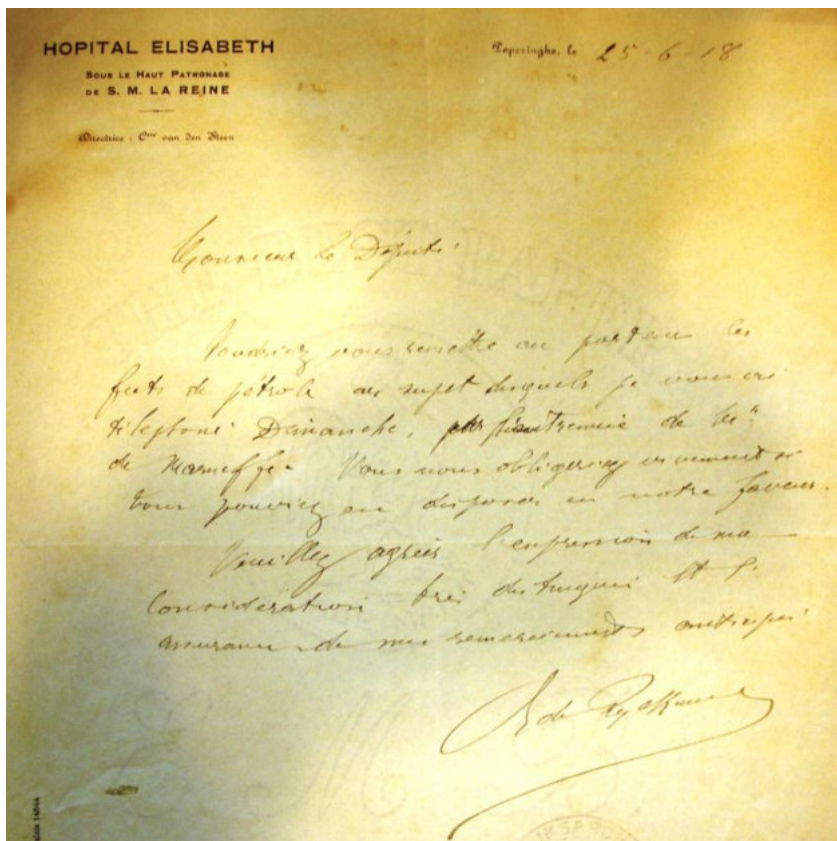 HOPITAL ELISABETH
SOUS LE HAUT PATRONAGE
DE S. M. LA REINE
Directrice : Csse van den Steen
Poperinghe, le 25-6-18
Monsieur le Député
Voudriez vous remettre au porteur les
futs de pétrole au sujet desquels je vous ai
téléphoné Dimanche, par l'entremise de
de Marneffe. Vous nous obligeriez vivement si
vous pouviez en disposer en notre faveur.
Veuillez agréer l'expression de ma
considération très distinguée et l'
assurance de mes remerciements anticipés
de Ryckman